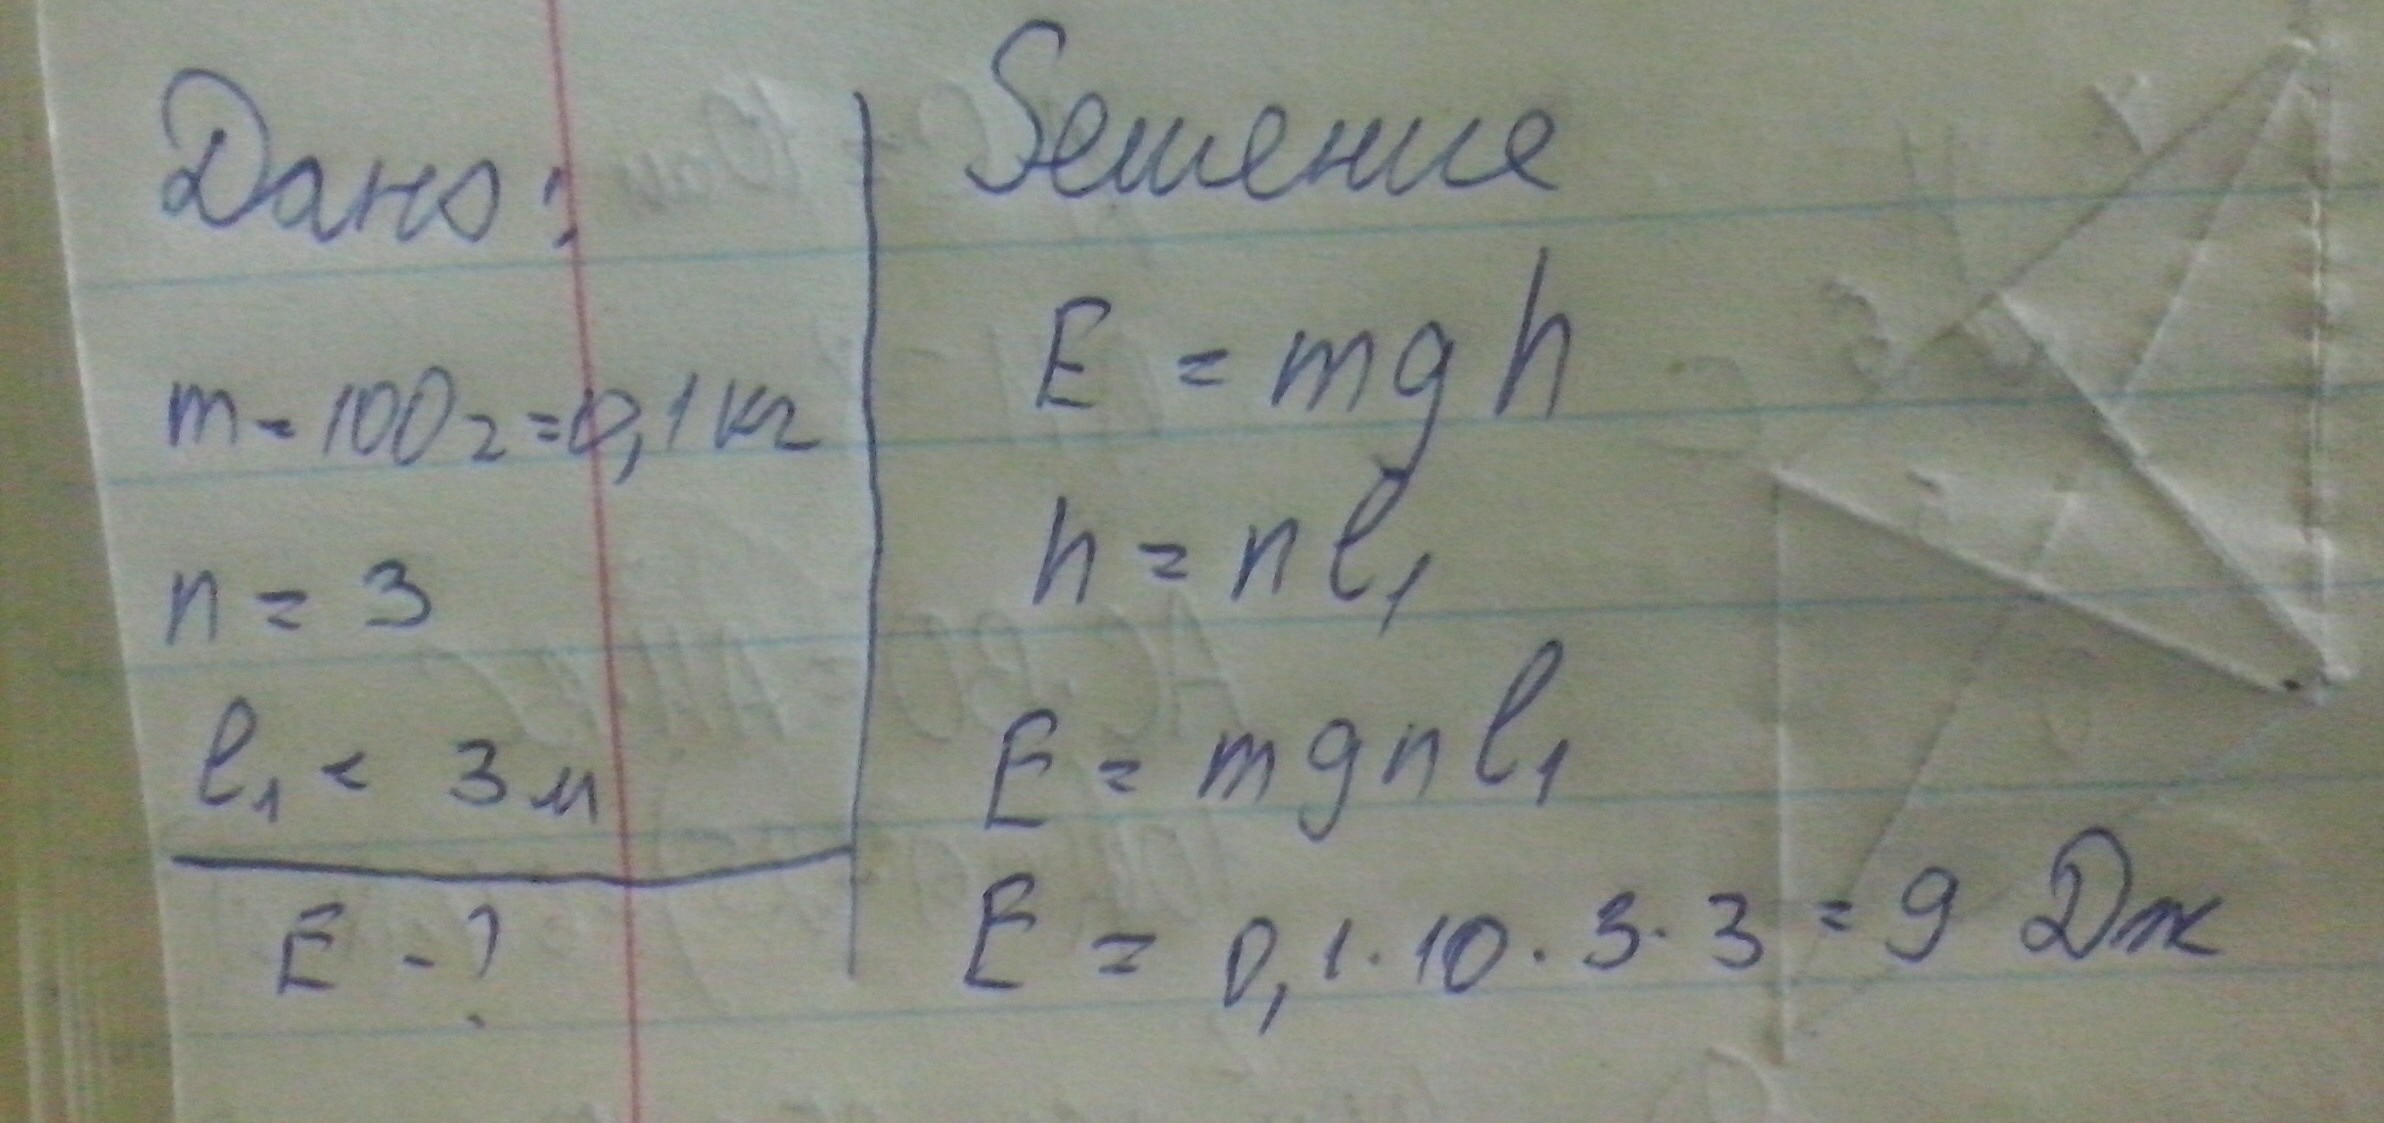 Дано:
m = 100 г = 0,1 кг
n = 3
l₁ = 3 м
E - ?
Решение
E = mgh
h = nl₁
E = mgnl₁
E = 0,1 · 10 · 3 · 3 = 9 Дж